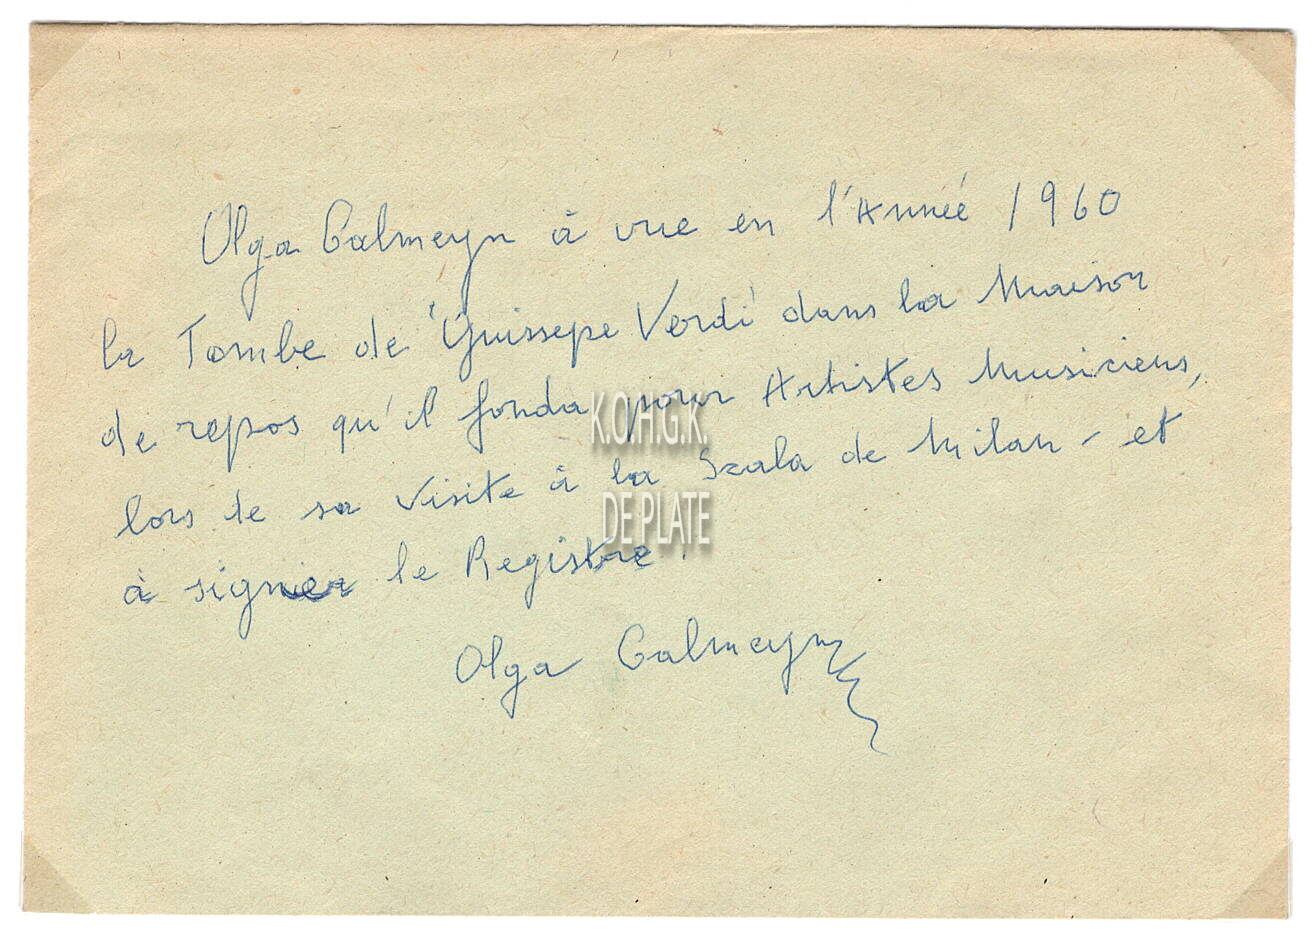 Olga Calmeyn à vue en l'Année 1960
la Tombe de "Guissepe Verdi" dans la Maison
de repos qu'il fonda pour Artistes Musiciens,
lors de sa Visite à la Scala de Milan - et
à signer le Registre.
Olga Calmeyn
K.O.H.G.K.
DE PLATE